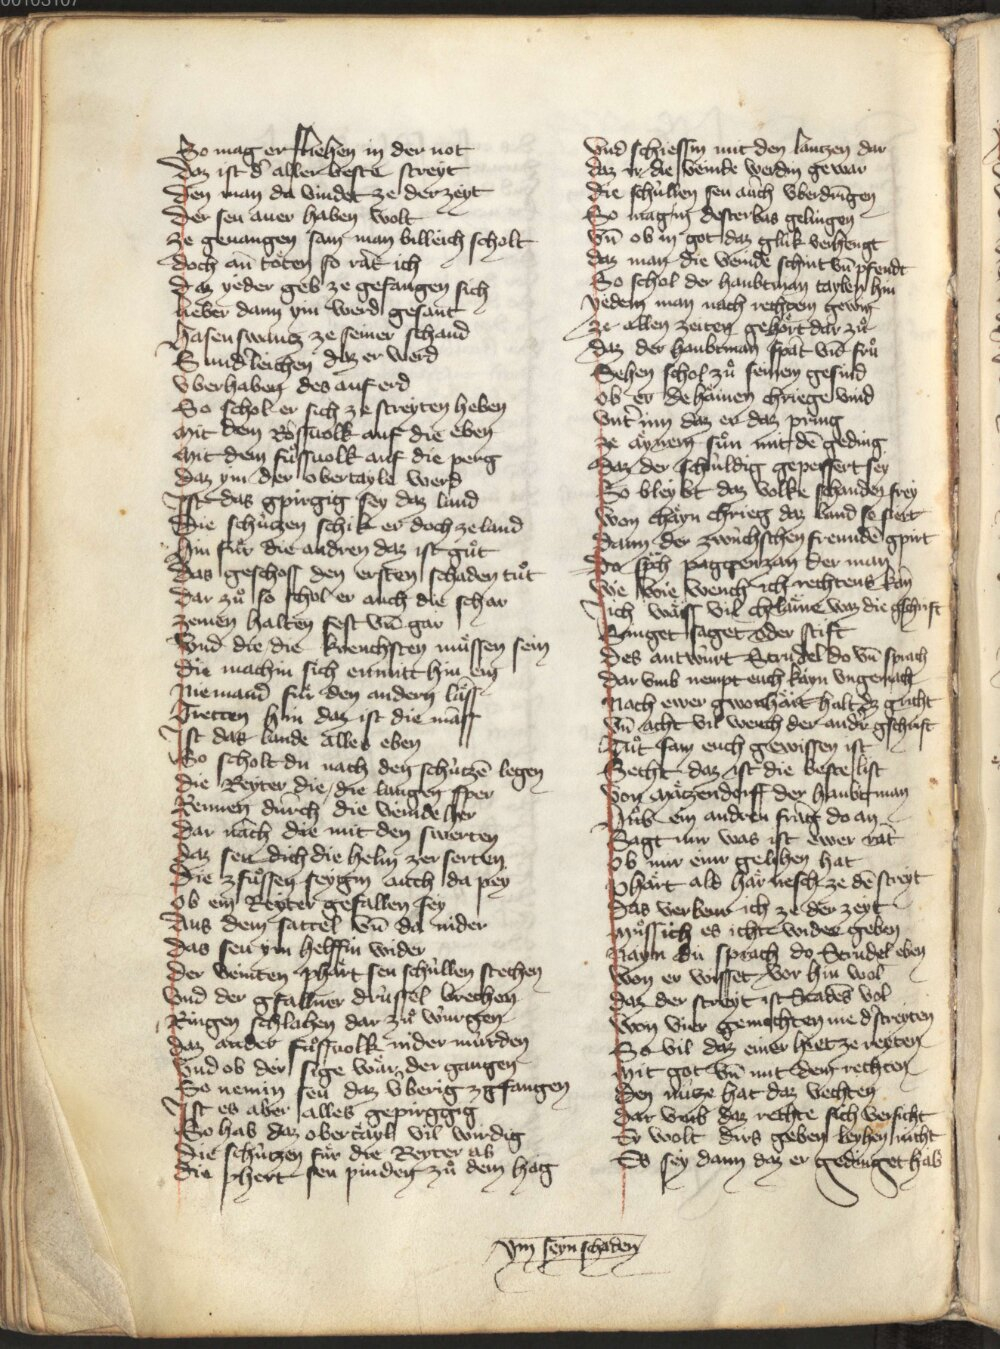 So mag er fliehen in der not
Daz ist d' aller beste streyt
Den man da vindet ze der zeyt
Der seu auer haben wolt
Ze geuangen sam man billeich scholt
Doch an töten so rat ich
Daz yeder geb ze gefangen sich
Lieber dann ym werd gesant
Hasenswantz ze seiner schand
Sundleichen daz er werd
Vberhaben des auf erd
So schol er sich ze streyten heben
Mit dem Rossuolk auf die eben
Mit dem fůssuolk auf die perg
Daz ym der obertayle werd
Ist das gpirgig sey daz land
Die schützen schik er doch ze land
Hin für die andren daz ist gůt
Das geschoss den ersten schaden tůt
Dar zů so schol er auch die schar
Zemen halten fest vn̄ gar
Vnd die die krenchsten müssen sein
Die machin sich enmitt hin ein
Niemand für den andern lass
Tretten hin daz ist die mass
Ist das lande alles eben
So scholt du nach den schützē legen
Die Reyter die die langen sper
Rennen durch die veinde her
Dar nach die mit den swerten
Daz seu dich die helm zerserten
Die zfůssen seygin auch da pey
Ob ein Reyter gefallen sey
Aus dem sattel vn̄ da nider
Das seu ym helffin wider
Der veinten phärt seu schüllen stechen
Vnd der gfallner drüssel brechen
Ringen schlahen dar zů würggen
Daz ander fůssuolk nider murden
Vnd ob der sige wär der gangen
So nemin seu daz vberig zgfangen
Ist es aber alles gepirggig
So hab daz obertayl vil wirdig
Die schützen für die Reyter ab
Die phert seu pinden zů dem hag
Vnd schiessin mit den lantzen dar
Daz er die veinde werdin gewar
Die schüllen seu auch vberdringen
So mag in desterbas gelingen
Vn̄ ob in got daz glük verhengt
Daz man die veinde schint vn̄ pfendt
So schol der haubtman taylen hin
Yedem man nach rechtem gewin
Ze allen zeiten gehört dar zů
Daz der haubtman spat vnd frů
Sehen schol zů seinem gesind
Ob er dehainen chriege vind
Vnt' inn daz er daz pring
Ze aynem sůn mit dē geding
Daz der schuldig gepessert sey
So bleybt daz volke schanden frey
Won chayn chrieg daz land so stert
Dann der zwüschen freunde gpirt
Do sprach paggenzan der man
We wie wench ich rechtens kan
Ich wayss vil chlaine waz die gschrift
Singet saget oder stift
Des antwürt Strudel do vn̄ sprach
Dar vmb nempt euch kayn vngemach
Nach ewer gwonhait halt dz gricht
Vn̄ acht vil wench der andr gschrift
Tůt sam euch gewissen ist
Secht daz ist die beste list
Von Mätzendorff der haubtman
Hůb ein andren frag do an
Sagt mir was ist ewer rat
Ob mir eur gelihen hat
Phärt ald harnesch ze dē streyt
Das verleur ich ze der zeyt
Müssich es ichte wider geben
Nayn du sprach do Strudel eben
Won er wisset vor hin wol
Daz der streyt ist scadēs vol
Won vier gemechten nie d' streyten
So vil daz einer hiet ze reyten
Mit got vn̄ mit dem rechten
Den nütze hat daz vechten
Dar vmb daz rechte sich versicht
Er wolt dirs geben leyhen nicht
Es sey dann daz er gedinget hab
Vm seyn schaden